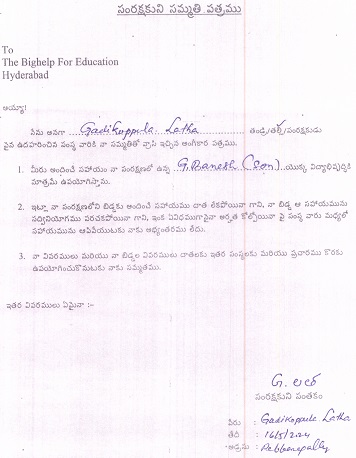 సంరక్షకుని సమ్మతి పత్రము
To
The Bighelp For Education
Hyderabad
అయ్యా!
నేను అనగా Gadikoppula Latha తండ్రి/తల్లి/సంరక్షకుడు
పైన ఉదహరించిన సంస్థ వారికి నా సమ్మతితో వ్రాసి ఇచ్చిన అంగీకార పత్రము.
1. మీరు అందించే సహాయం నా సంరక్షణలో ఉన్న G. Ganesh (Son) యొక్క విద్యాభివృద్ధికి
మాత్రమే ఉపయోగిస్తాను.
2. ఇట్లా నా సంరక్షణలోని బిడ్డకు అందించే సహాయము దాత లేకపోయినా గాని, నా బిడ్డ ఆ సహాయమును
సద్వినియోగము పరచకపోయినా గాని, ఇంక ఏవిధముగానైనా అర్హత కోల్పోయినా పై సంస్థ వారు మధ్యలో
సహాయమును ఆపివేయుటకు నాకు అభ్యంతరము లేదు.
3. నా వివరములు మరియు నా బిడ్డల వివరములు దాతలకు ఇతర సంస్థలకు మరియు ప్రచారము కొరకు
ఉపయోగించుకొనుటకు నాకు సమ్మతము.
ఇతర వివరములు ఏమైనా :-
G. లత
సంరక్షకుని సంతకం
పేరు : Gadikoppula Latha
తేదీ :
అడ్రసు :